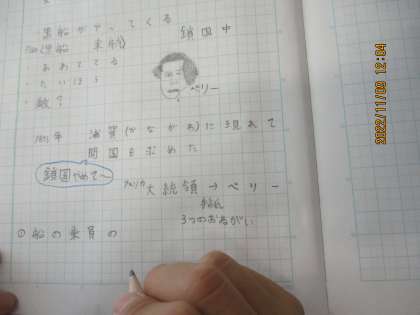 黒船がやってくる
鎖国中
(黒船 来航)
・あわててる
・たいほう
・敵?
ペリー
1853年 浦賀(かながわ)に現れて
開国を求めた
鎖国やめて〜
アメリカ大統領→ペリー
3つのおねがい
①船の乗員の
2022/11/09 12:04